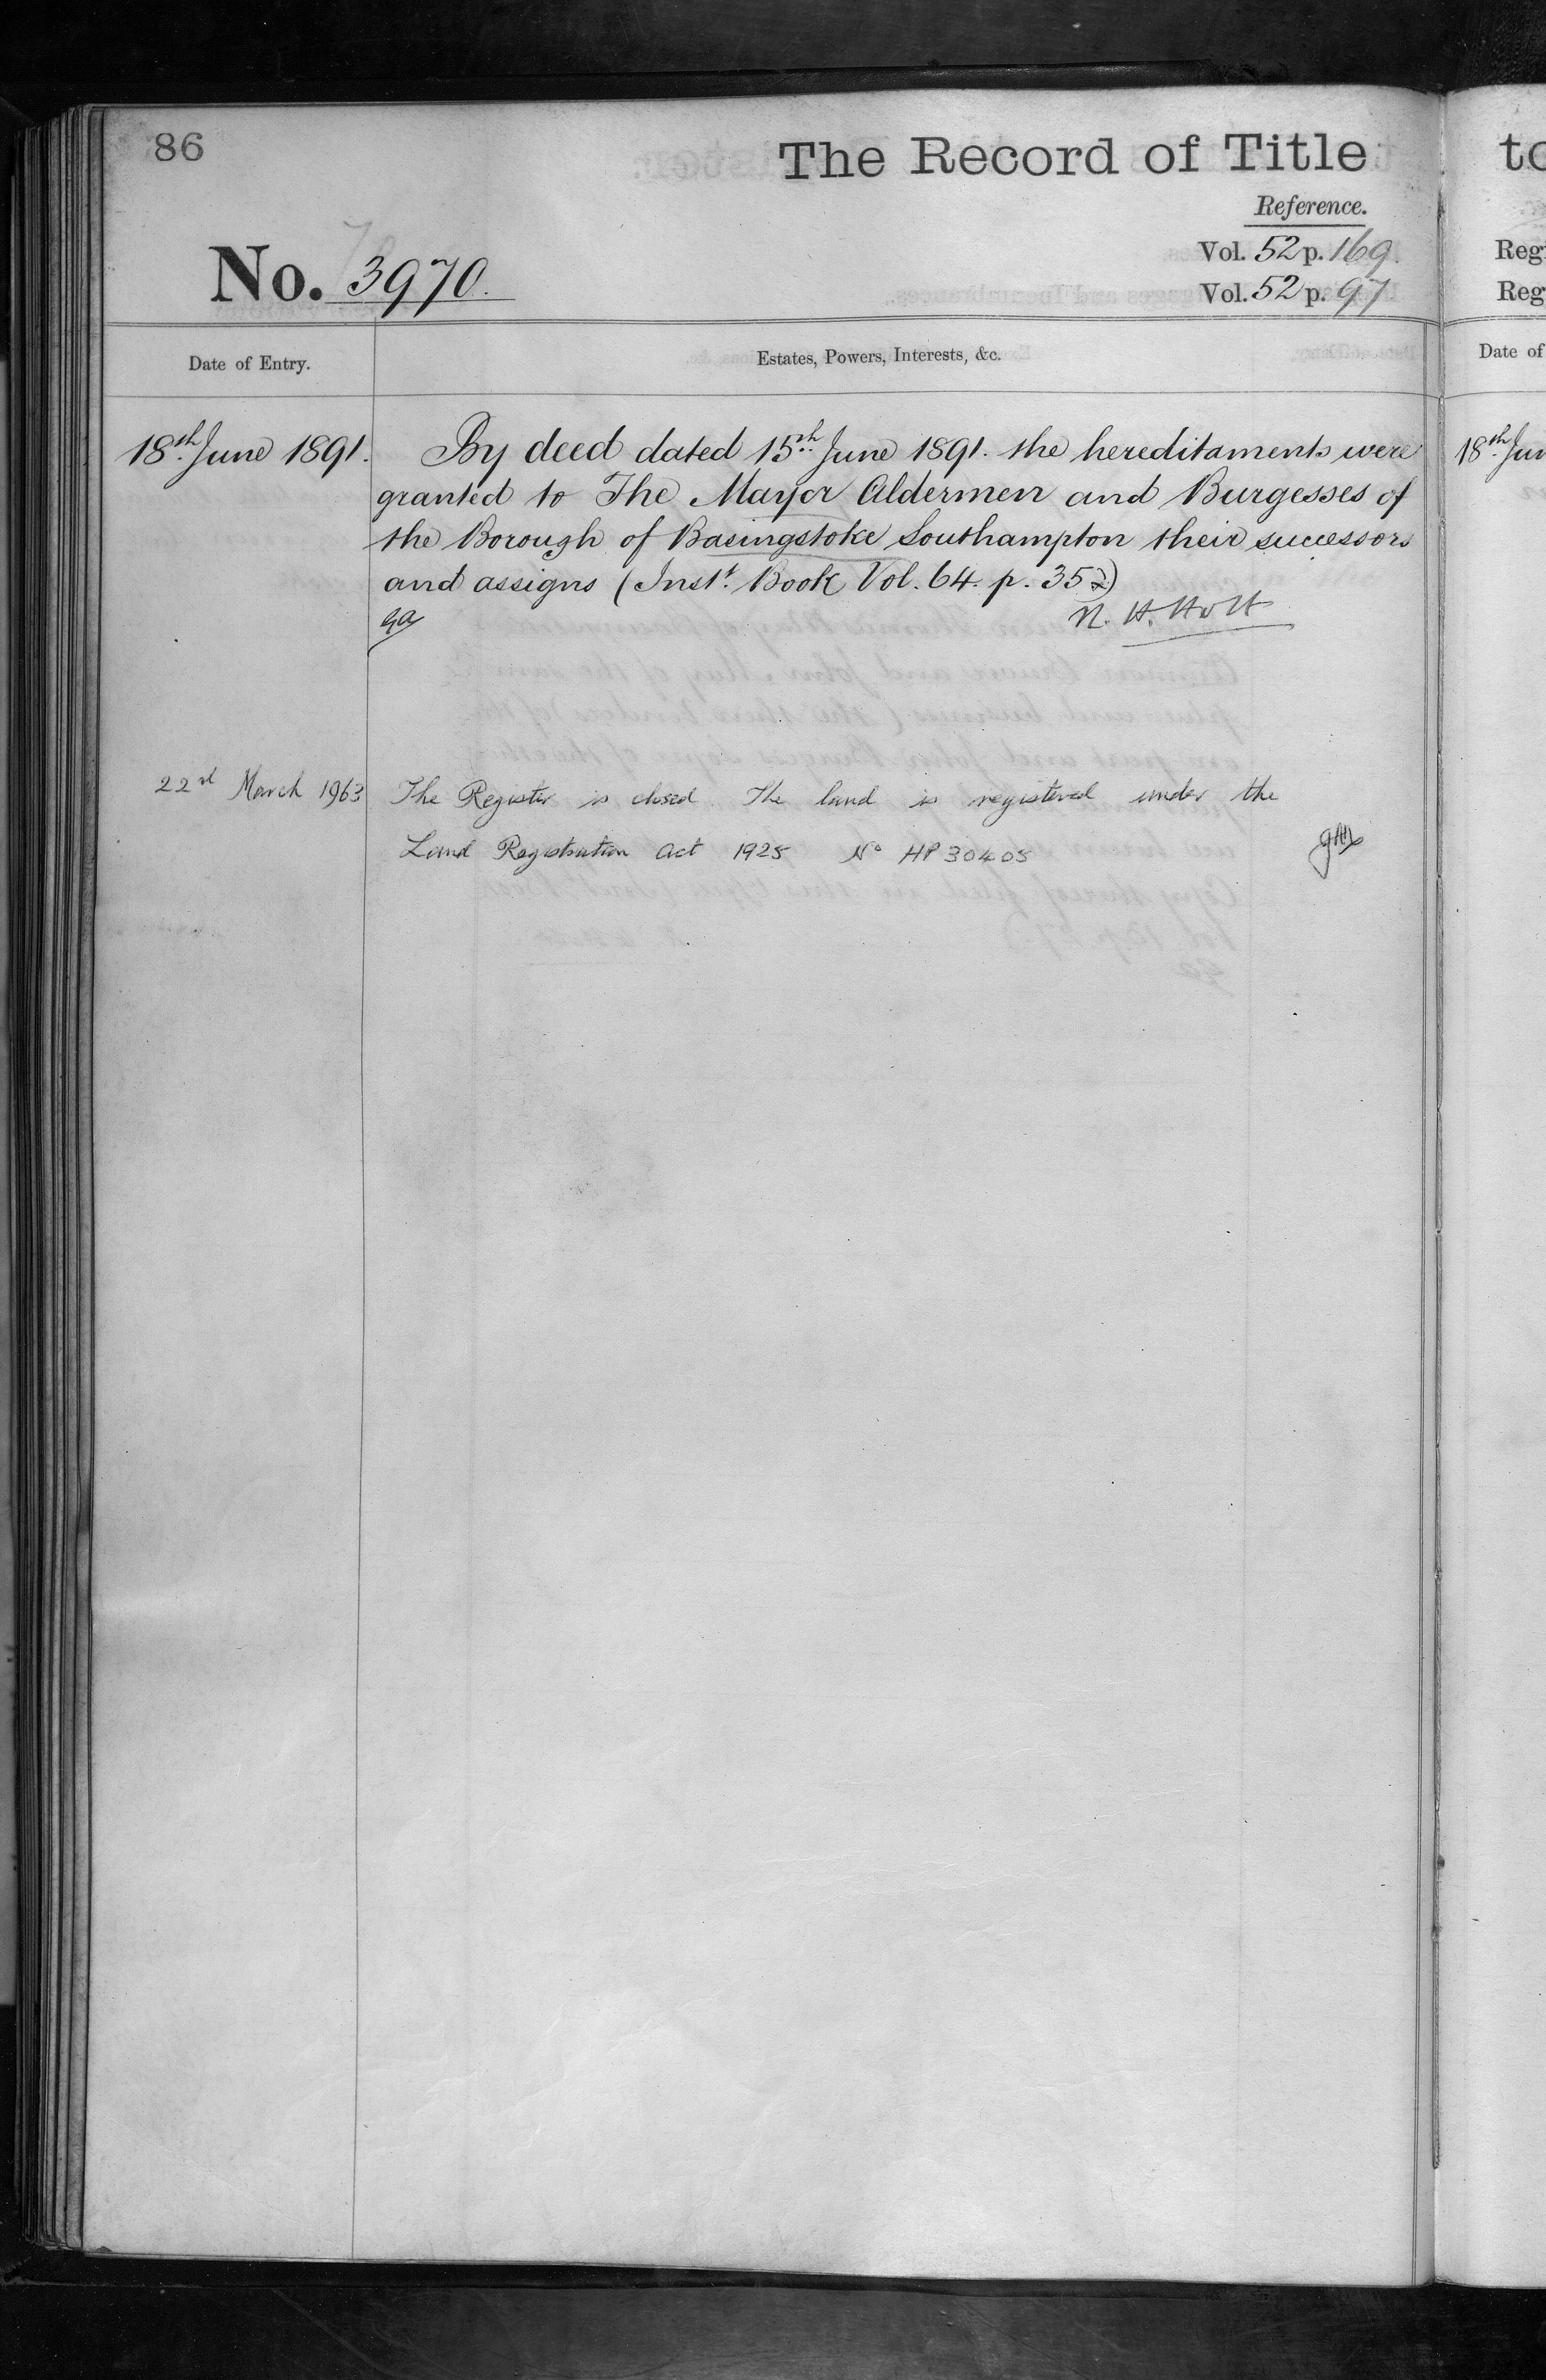 86
The Record of Title
Reference.
No. 3970.
Vol. 52 p. 169.
Vol. 52 p. 97
Date of Entry.
Estates, Powers, Interests, &c.
18th June 1891.
By deed dated 15th June 1891. the hereditaments were
granted to The Mayor Aldermen and Burgesses of
the Borough of Basingstoke Southampton their successors
and assigns (Inst. Book Vol. 64. p. 352)
N. H. Holt
22nd March 1963
The Register is closed. The land is registered under the
Land Registration Act 1925 No HP 30405
to
Reg
Reg
Date of
18th Jun